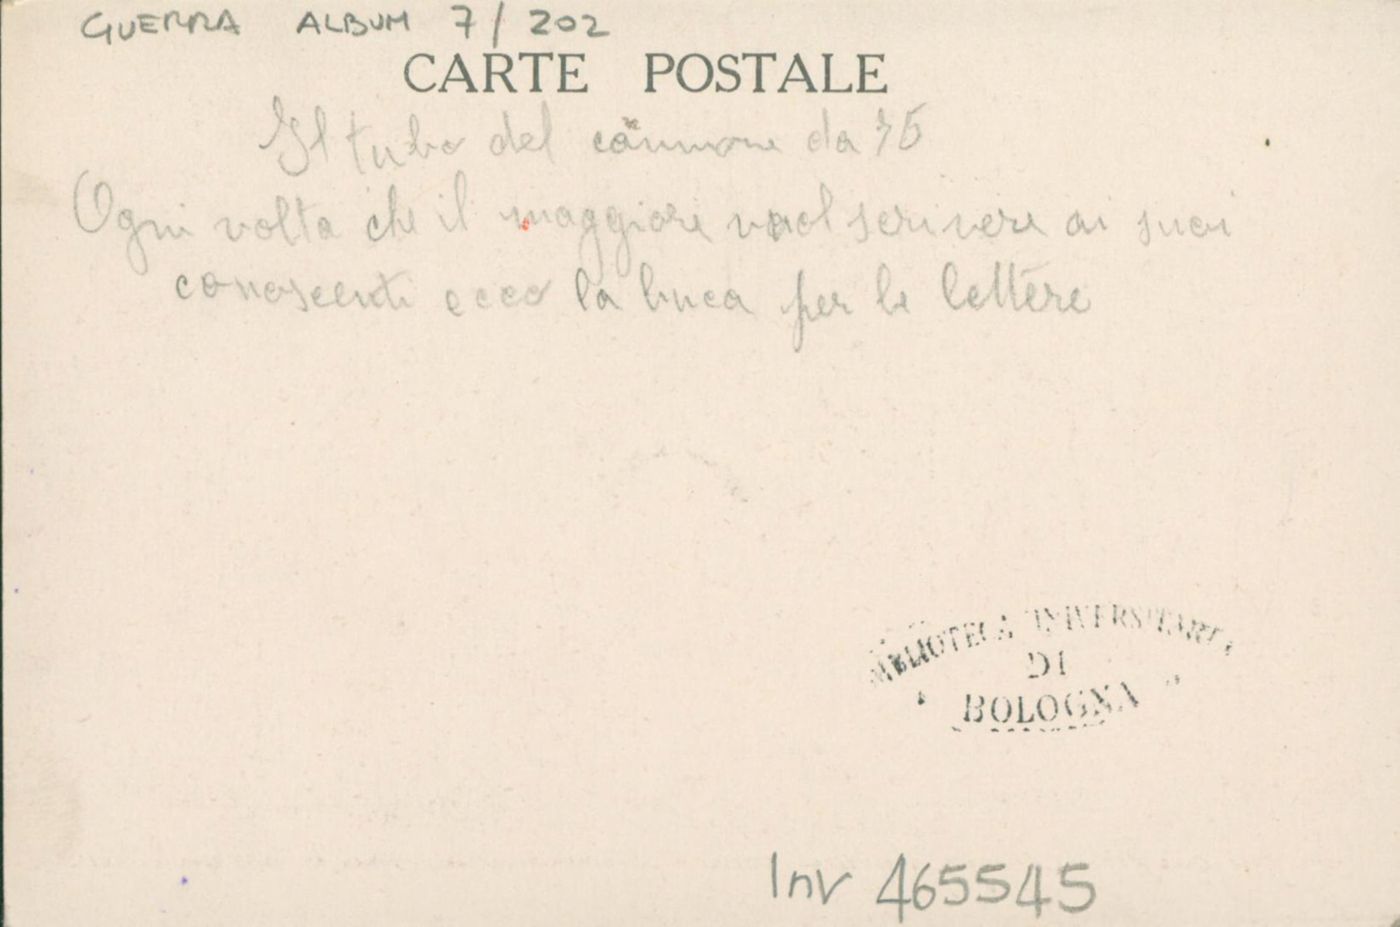 GUERRA ALBUM 7/202
CARTE POSTALE
Il tubo del cannone da 75
Ogni volta che il maggiore vuol scrivere ai suoi
conoscenti ecco la buca per le lettere
BIBLIOTECA UNIVERSITARIA
DI
BOLOGNA
Inv 465545